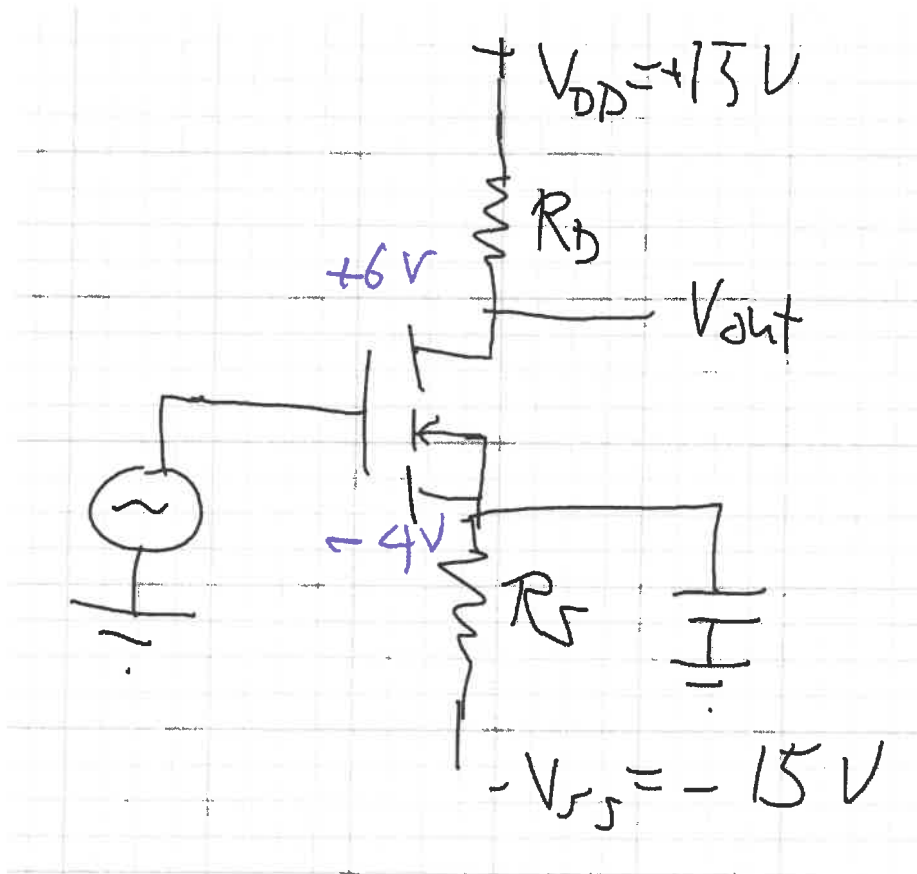 + V_DD = +15 V
R_D
+6 V
Vout
~
- 4V
R_S
- V_SS = - 15 V